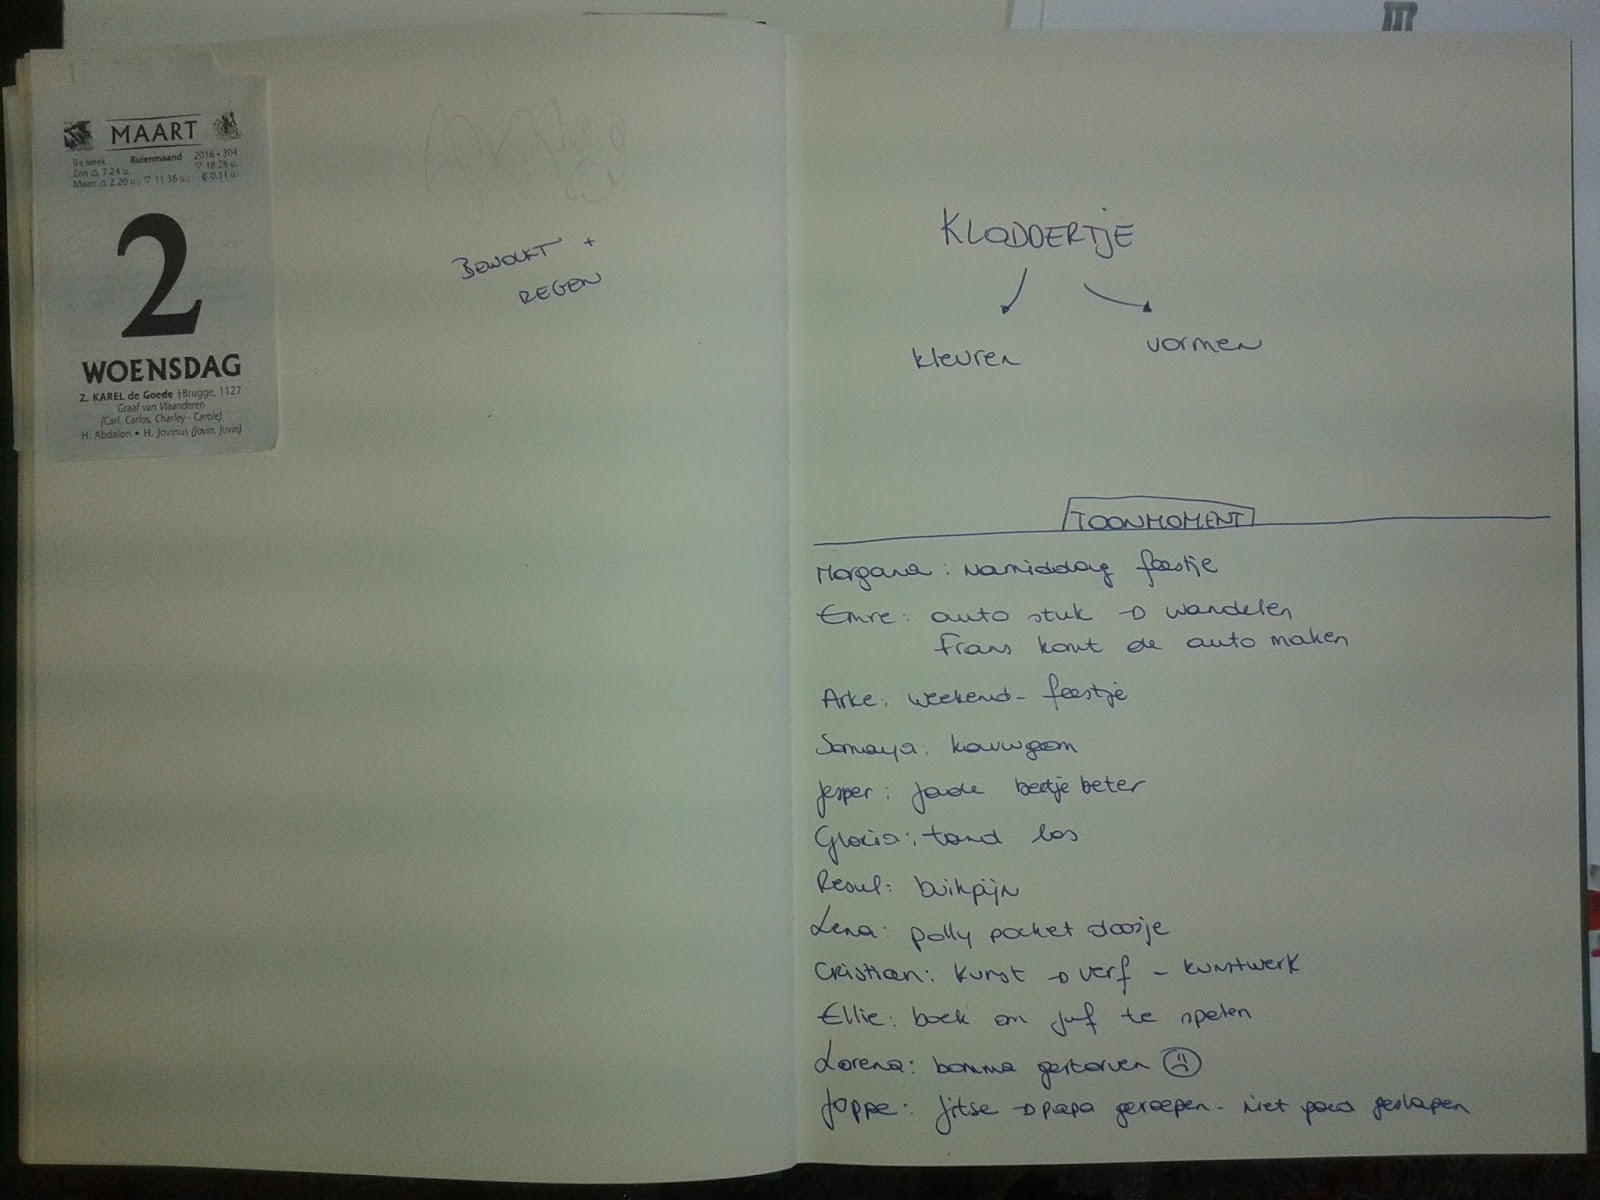 MAART
9e week Buienmaand 2016 • 304
Zon △ 7.24 u. ▽ 18.26 u.
Maan △ 2.20 u., ▽ 11.36 u., € 0.11 u.
2
WOENSDAG
Z. KAREL de Goede †Brugge, 1127
Graaf van Vlaanderen
(Carl, Carlos, Charley - Carole)
H. Abdalon • H. Jovinus (Jovin, Juvin)
BEWOLKT +
REGEN
KLODDERTJE
kleuren
vormen
TOONMOMENT
Morgana: Namiddag feestje
Emre: auto stuk → wandelen
Frans komt de auto maken
Arke: weekend - feestje
Somaya: kauwgom
Jesper: Jade beetje beter
Gloria: tand los
Resul: buikpijn
Lena: polly pocket doosje
Cristian: kunst → verf - kunstwerk
Ellie: boek om juf te spelen
Lorena: bomma gestorven ☹
Joppe: Jitse → papa geroepen - niet goed geslapen